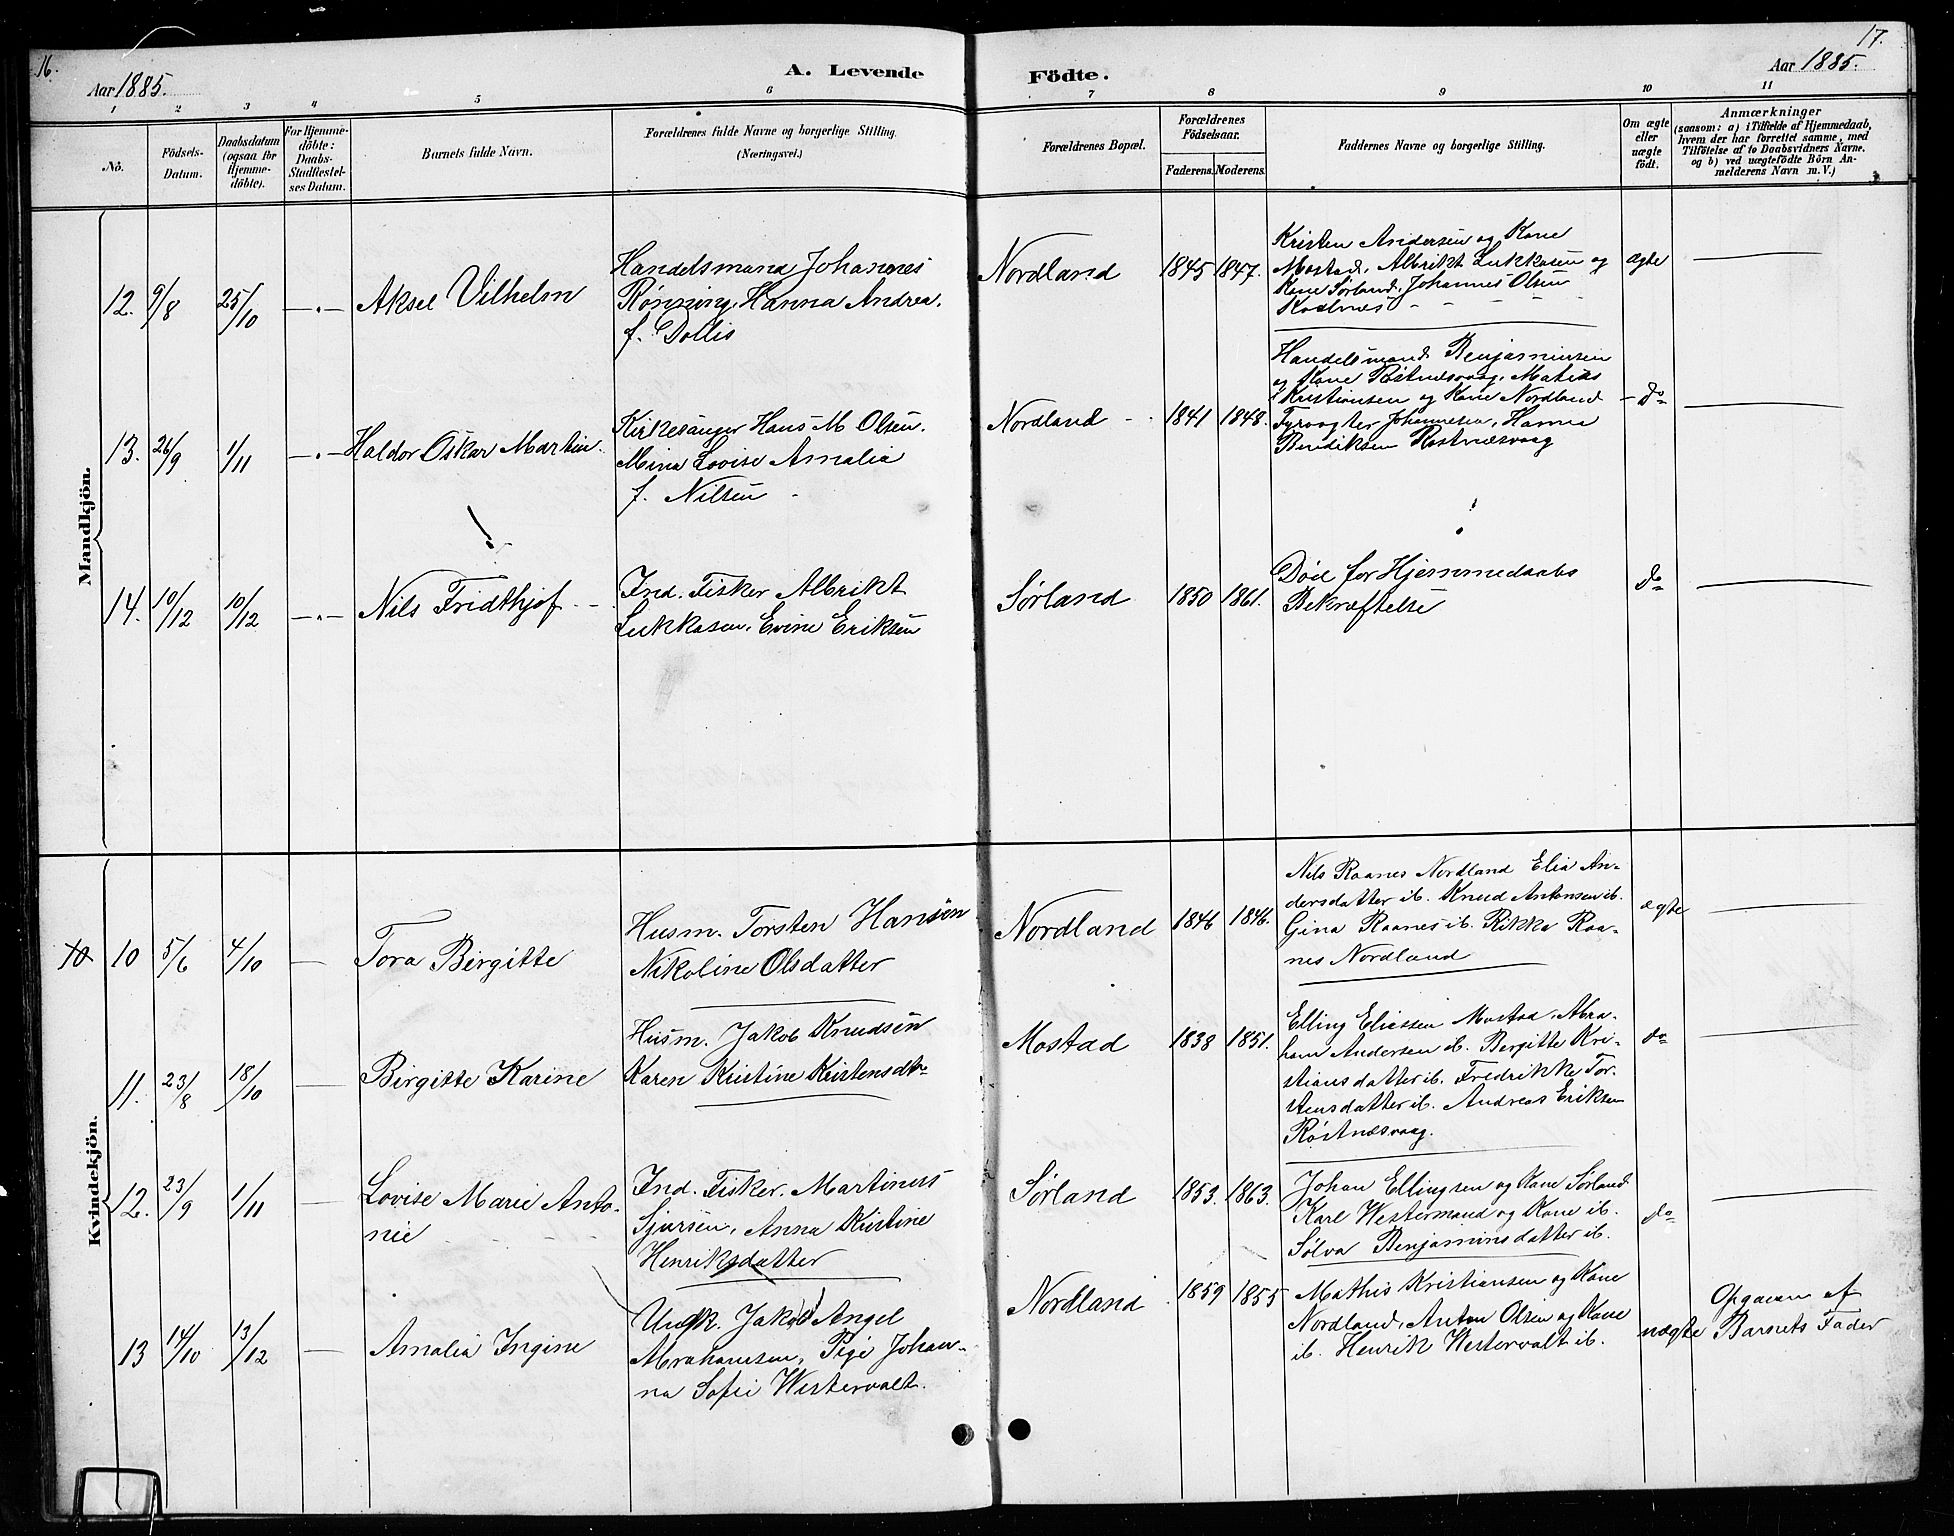 16.
Aar 1885.
A. Levende
Födte.
17.
Aar 1885.
1
2
3
4
5
6
7
8
9
10
11
No.
Födsels-
Datum.
Daabsdatum
(ogsaa for
Hjemme-
döbte).
For Hjemme-
döbte:
Daabs-
Stadfæstel-
ses Datum.
Barnets fulde Navn.
Forældrenes fulde Navne og borgerlige Stilling.
(Næringsvei.)
Forældrenes Bopæl.
Forældrenes
Födselsaar.
Faderens.
Moderens.
Faddernes Navne og borgerlige Stilling.
Om ægte
eller
uægte
födt.
Anmærkninger
(saasom: a) i Tilfælde af Hjemmedaab,
hvem der har forrettet samme, med
Tilföielse af to Daabsvidners Navne.
og b) ved uægtefödte Börn An-
melderens Navn m. V.)
Mandkjön.
12.
9/8
25/10
—"—
Aksel Vilhelm
Handelsmand Johannes
Rönning, Hanna Andrea.
f. Dollis
Nordland
1845
1847.
Kristen Andersen og Kone
Mostad, Albrikt Lukkasen og
Kone Sørland, Johannes Olsen
ægte
13.
26/9
1/11
—"—
Haldor Oskar Martin.
Kirkesanger Hans M Olsen.
Mina Lovise Amalia
f. Nilsen
Nordland
1841
1848.
Handelsmand Benjaminsen
og Kone Røstnæsvaag, Matias
Kristiansen og Kone Nordland
Fyrvogter Johannesen, Hanna
Bendiksen Røstnæsvaag
do
14.
10/12
10/12
—"—
Nils Fridthjof
Ind. Fisker Albrikt
Lukkasen, Evine Eriksen
Sørland
1850
1861.
Død før Hjemmedaabs
Bekræftelse
do
Kvindekjön.
10
10
5/6
4/10
—
Tora Birgitte
Husm. Torsten Hansen
Nikoline Olsdatter
Nordland
1846
1846.
Nils Raanes Nordland Elia An-
dersdatter ib. Knud Antonsen ib.
Gina Raanes ib. Rikka Raa-
nes Nordland
ægte
11.
23/8
18/10
—
Birgitte Karine
Husm. Jakob Knudsen
Karen Kristine Kristensdtr
Mostad
1838
1851.
Elling Eliassen Mostad, Abra-
ham Andersen ib. Bergitte Kri-
stiansdatter ib. Fredrikke Tor-
stensdatter ib. Andreas Eriksen
Røstnæsvaag.
do
12.
23/9
1/11
—
Lovise Marie Anto-
nie
Ind. Fisker. Martinus
Sjursen, Anna Kristine
Henriksdatter
Sørland
1853.
1863.
Johan Ellingsen og Kone Sørland
Karl Westermand og Kone ib.
Sølva Benjaminsdatter ib.
do
13
14/10
13/12
—
Amalia Ingine
Ungk. Jakob Angel
Abrahamsen, Pige Johan-
na Sofie Westervalt.
Nordland
1859
1855
Mathis Kristiansen og Kone
Nordland, Anton Olsen og Kone
ib. Henrik Westervalt ib.
uægte
Opgaven af
Barnets Fader